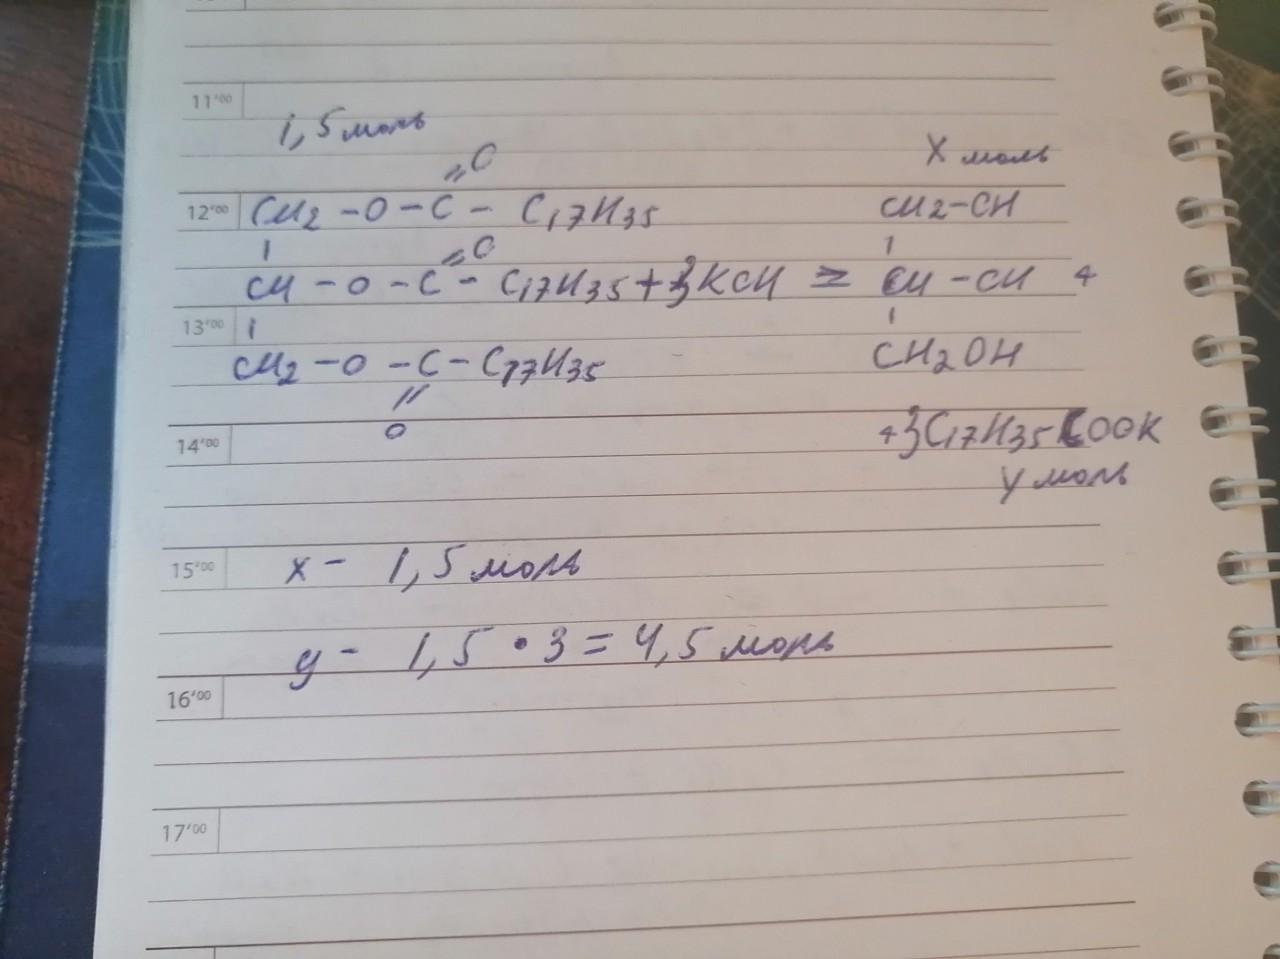 11'00
1,5 моль
X моль
=O
12'00 CH2 - O - C - C17H35 CH2-OH
| =O |
CH - O - C - C17H35 + 3KOH = CH - OH +
13'00 | |
CH2 - O - C - C17H35 CH2OH
//
O
14'00 +3C17H35COOK
y моль
15'00 x - 1,5 моль
y - 1,5 • 3 = 4,5 моль
16'00
17'00